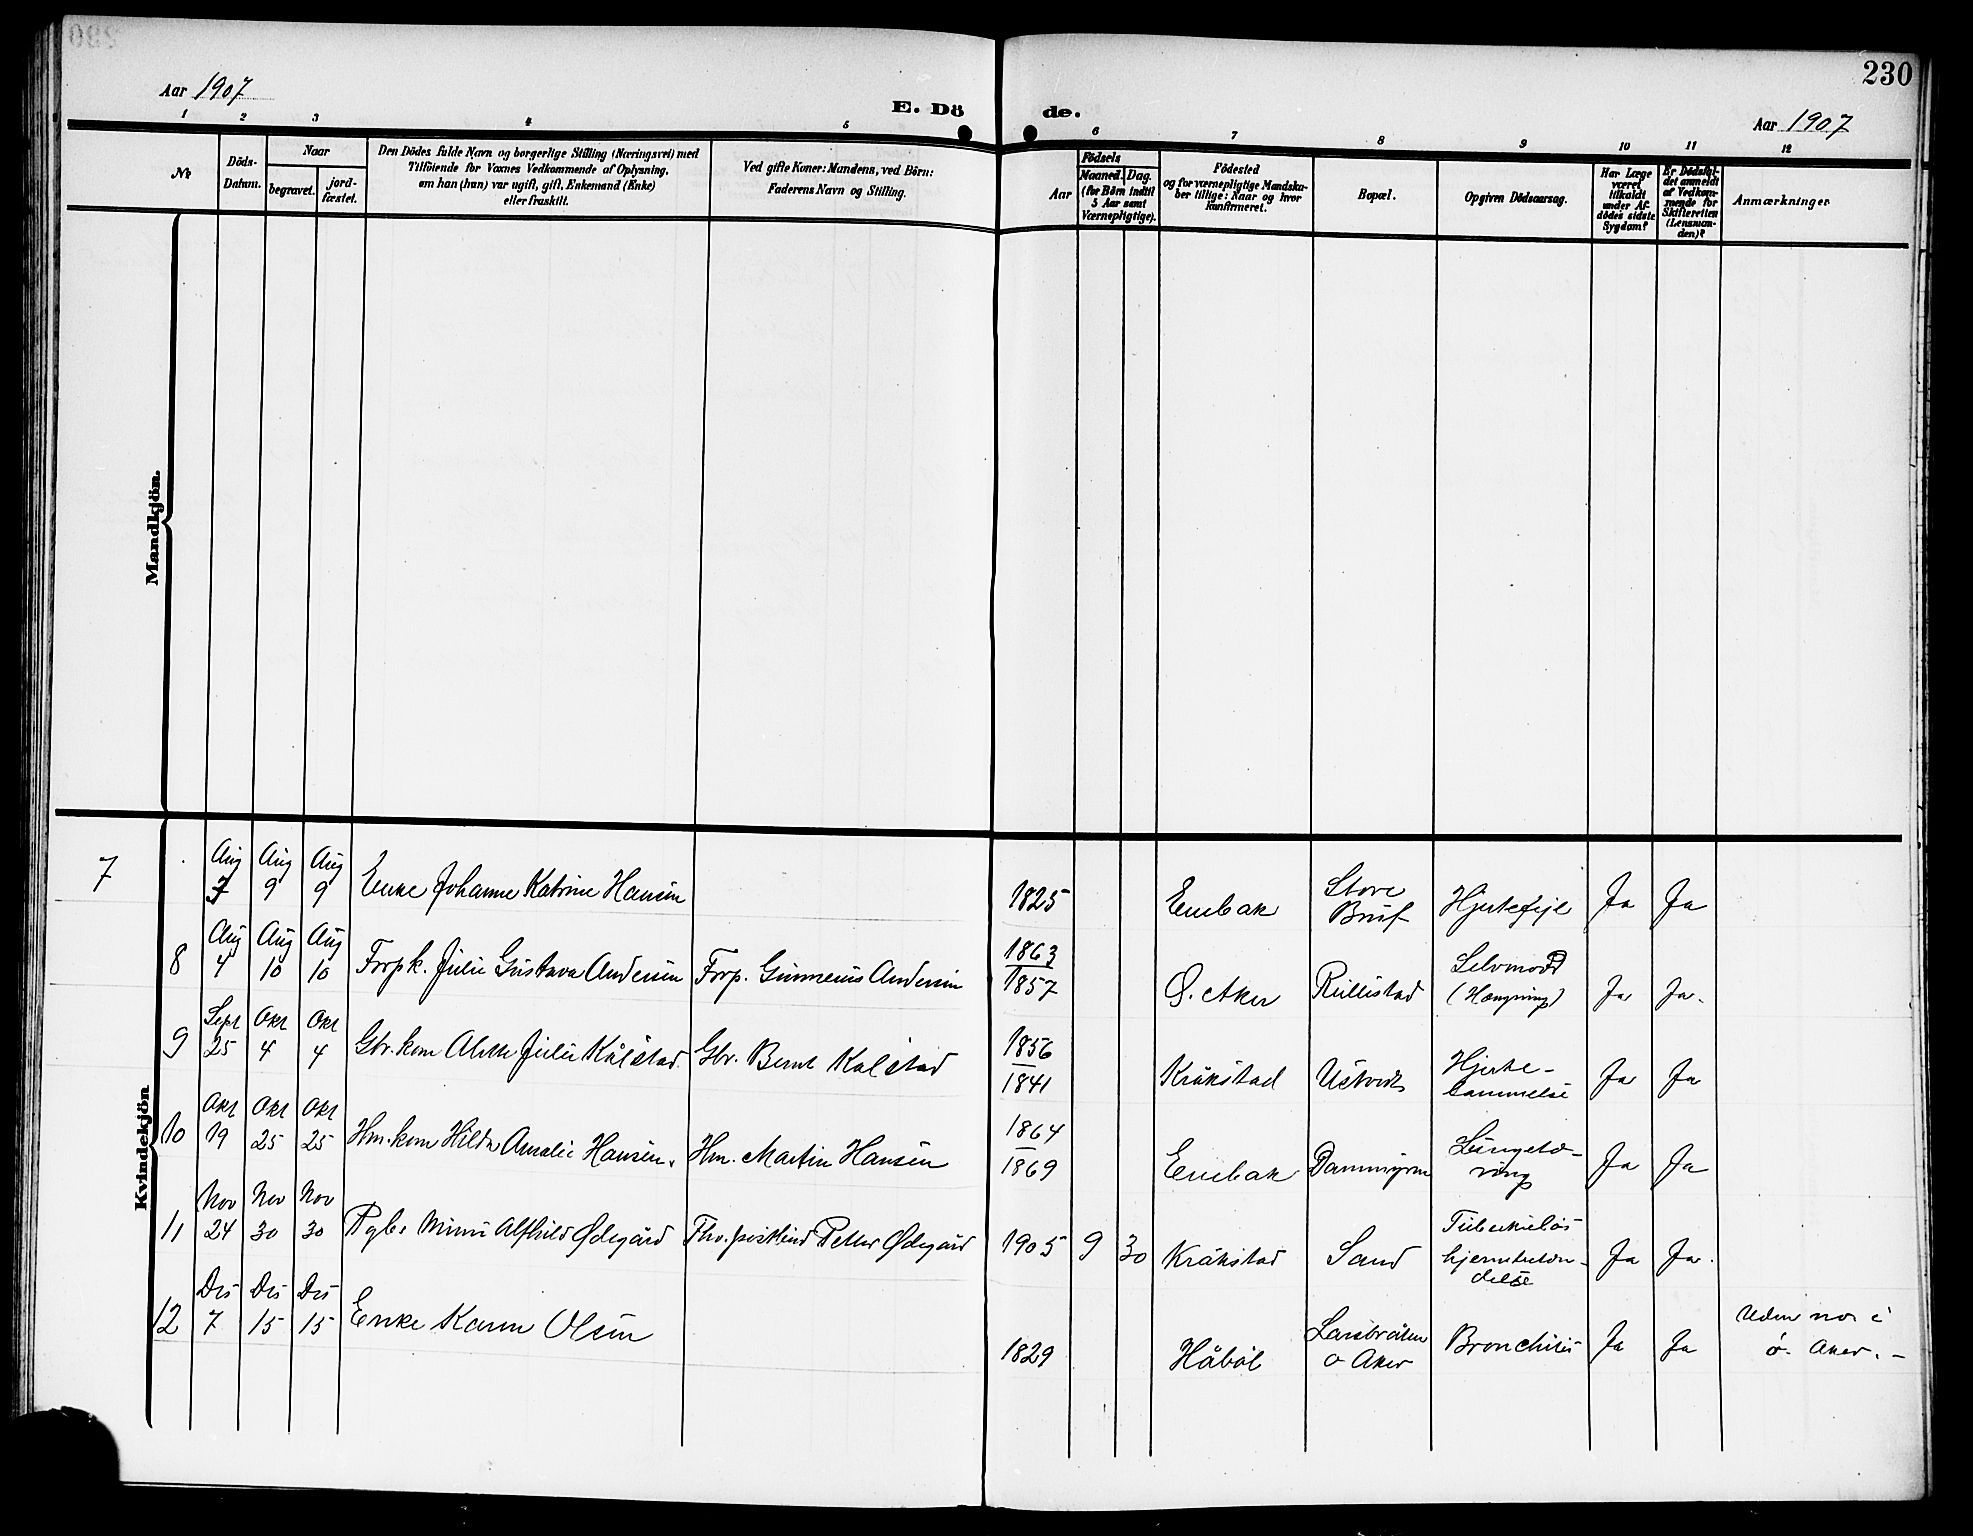 230
Aar 1907
E. Dö de.
Aar 1907
1 2 3 4 5 6 7 8 9 10 11 12
No
Döds-
Datum.
Naar
begravet.
jord-
fæstet.
Den Dödes fulde Navn og borgerlige Stilling (Næringsvei) med
Tilföiende for Voxnes Vedkommende af Oplysning,
om han (hun) var ugift, gift, Enkemand (Enke)
eller fraskilt.
Ved gifte Koner: Mandens, ved Börn:
Faderens Navn og Stilling.
Aar
Födsels
Maaned. Dag.
(for Börn indtil
5 Aar samt
Værnepligtige).
Födested
og for værnepligtige Mandska-
ber tillige: Naar og hvor
konfirmeret.
Bopæl.
Opgiven Dödsaarsag.
Har Læge
været
tilkaldt
under Af-
dödes sidste
Sygdom?
Er Dödsfal-
det anmeldt
af Vedkom-
mende for
Skifteretten
(Lensman-
den)?
Anmærkninger
Mandkjön.
Kvindekjön
7 Aug 7 Aug 9 Aug 9 Enke Johanne Katrine Hansen 1825 Enebak Store Brus Hjertefeil Ja Ja
8 Aug 4 Aug 10 Aug 10 Forpk. Julie Gustava Andersen Forp. Gunnerius Andersen 1863 1857 Ø. Aker Rullestad Selvmord (Hængning) Ja Ja.
9 Sept 25 Okt 4 Okt 4 Gbr. kone Alette Julie Kålstad Gbr. Bernt Kolstad 1856 1841 Kråkstad Hjerte- lammelse Ja Ja
10 Okt 19 Okt 25 Okt 25 Hm. kone Hilda Amalie Hansen. Hm. Martin Hansen 1864 1869 Enebak Dammyren Lungetæ- ring Ja Ja
11 Nov 24 Nov 30 Nov 30 Pgb. Minni Alfhild Ødegård Petter Ødegård 1905 9 30 Kråkstad Sand Tuberkuløs hjernebetæn- delse Ja Ja.
12 Des 7 Des 15 Des 15 Enke Karen Olsen 1829 Håbøl Larsbråten Ø Aker Bronchitis Ja Ja Uden no. i Ø. Aker. –